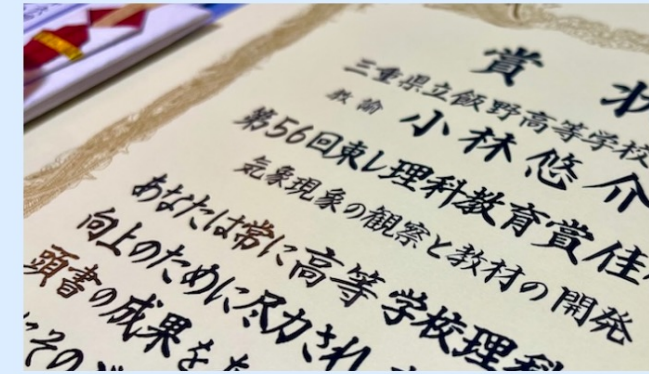 賞状
三重県立飯野高等学校
教諭 小林悠介
第56回東レ理科教育賞佳
気象現象の観察と教材の開発
あなたは常に高等学校理科
向上のために尽力され
頭書の成果を
その